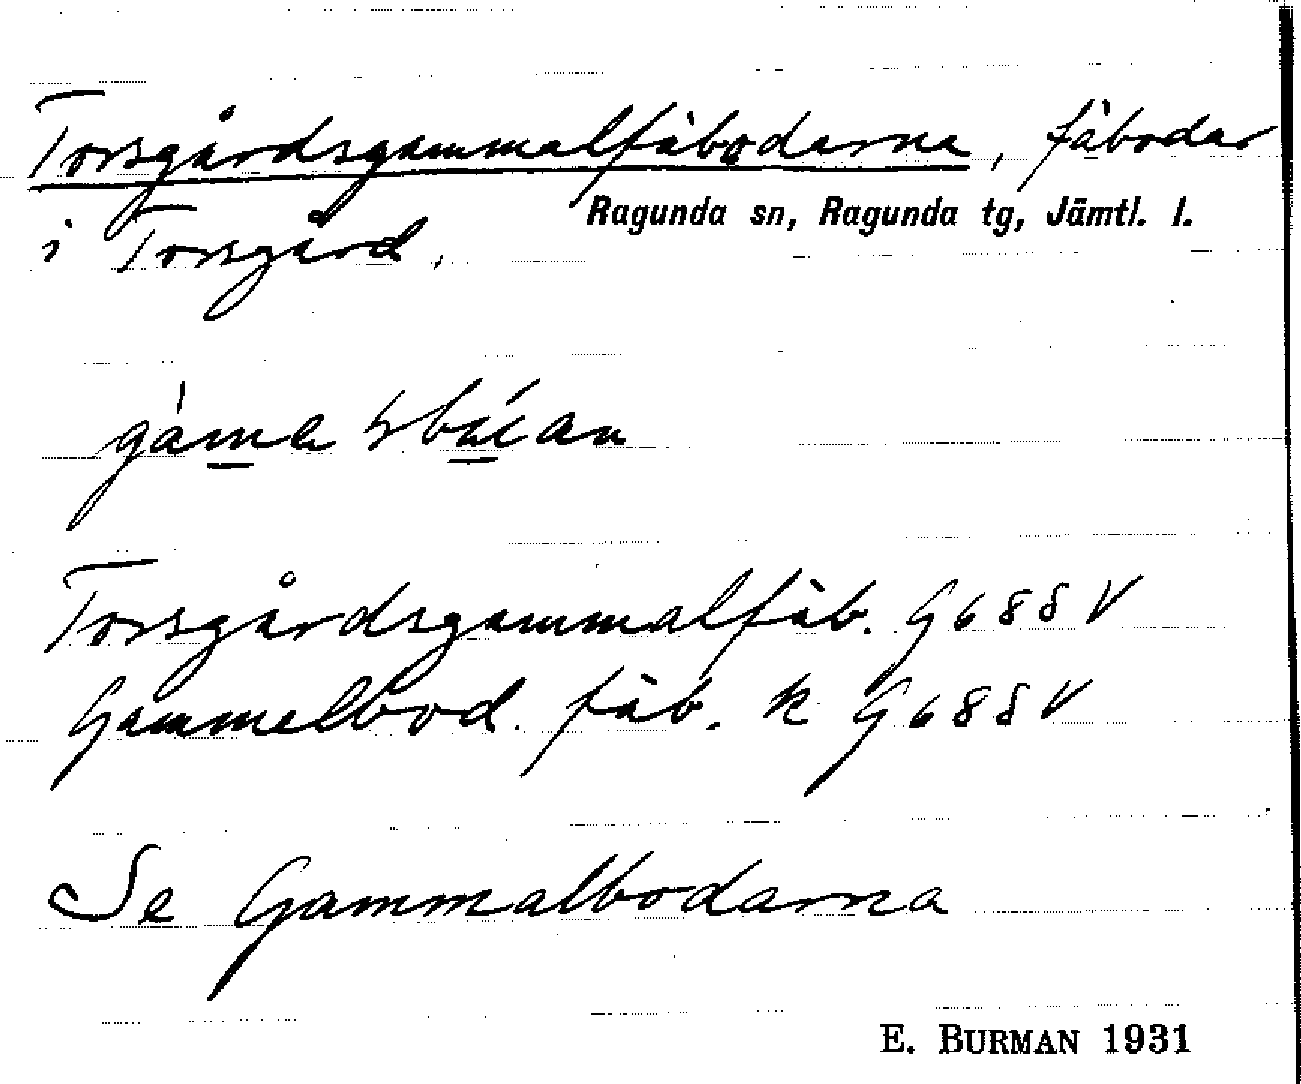 Torsgårdsgammalfäbodarna, fäbodar
Ragunda sn, Ragunda tg, Jämtl. l.
i Torsgård.
Torsgårdsgammalfäb. G 68 S V
Gammelbod. fäb. k G 68 S V
Se Gammalbodarna
E. BURMAN 1931